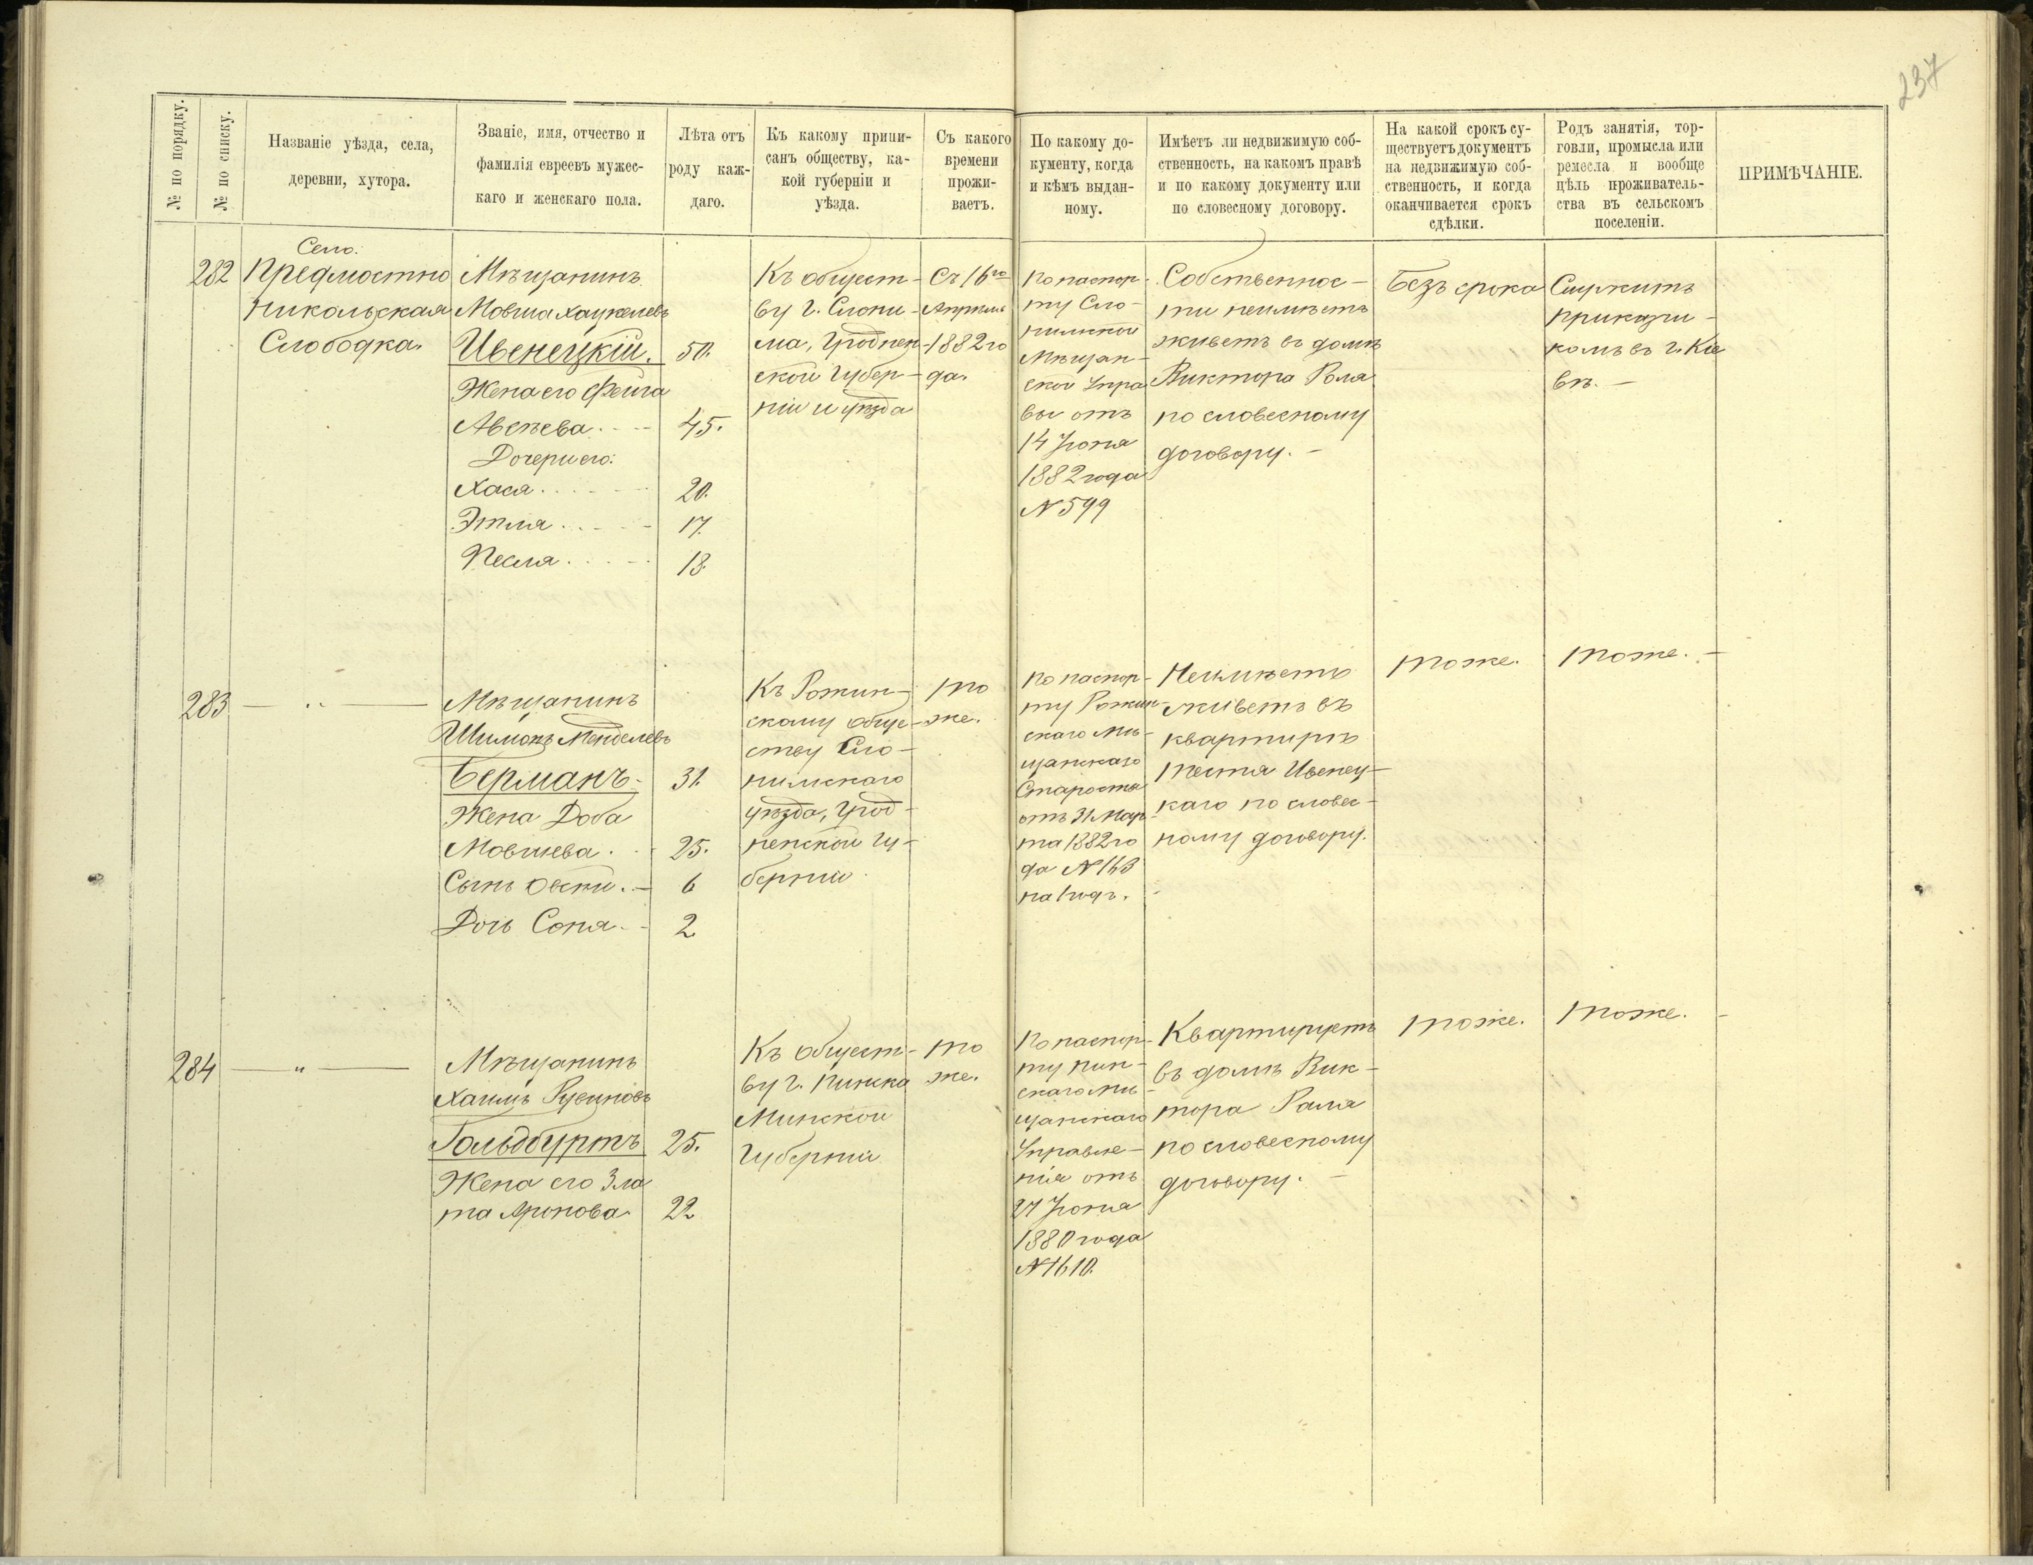 237
№ по порядку.
№ по списку.
Названіе уѣзда, села,
деревни, хутора.
Званіе, имя, отчество и
фамилія евреевъ мужес-
каго и женскаго пола.
Лѣта отъ
роду каж-
даго.
Къ какому припи-
санъ обществу, ка-
кой губерніи и
уѣзда.
Съ какого
времени
прожи-
ваетъ.
По какому до-
кументу, когда
и кѣмъ выдан-
ному.
Имѣетъ ли недвижимую соб-
ственность, на какомъ правѣ
и по какому документу или
по словесному договору.
На какой срокъ су-
ществуетъ документъ
на недвижимую соб-
ственность, и когда
оканчивается срокъ
сдѣлки.
Родъ занятія, тор-
говли, промысла или
ремесла и вообще
цѣль проживатель-
ства въ сельскомъ
поселеніи.
ПРИМѢЧАНІЕ.
282
Село.
Предмостно
Никольская
Слободка.
Мѣщанинъ
Мовша Хацкелевъ
Ивенецкій. 50.
Жена его Фейга
Авсѣева. 45.
Дочери его:
Хася 20.
Этля 17.
Песля 13
Къ общест-
ву г. Слони-
ма, Гроднен-
ской Губер-
ніи и уѣзда
Съ 16го
Апрѣля
1882 го
да.
По паспор-
ту Сло-
нимской
Мѣщан-
ской Упра
вы отъ
14 Іюня
1882 года
N 599
Собственнос-
ти неимѣетъ
живетъ въ домѣ
Виктора Роля
по словесному
договору. -
Безъ срока
Служитъ
прикащи-
комъ въ г. Кіе
вѣ. -
283 — " —
Мѣщанинъ
Шимонъ Менделевъ
Берманъ. 31.
Жена Доба
Мовшева. 25.
Сынъ Овсѣй. - 6
Дочь Соня. 2
Къ Рожин-
скому обще-
ству Сло-
нимскаго
уѣзда, Грод-
ненской Гу-
берніи
то
же.
По паспор-
ту Рожин-
скаго Мѣ-
щанскаго
Старосты
отъ 31 Мар-
та 1882 го
да N 163
на 1 годъ.
Неимѣетъ
живетъ въ
квартирѣ
тестя Ивенец-
каго по словес-
ному договору.
тоже.
тоже. -
284 — " —
Мѣщанинъ
Хаимъ Рубиновъ
Гольдбуртъ 25.
Жена его Зла
та Аронова 22
Къ общест-
ву г. Пинска
Минской
Губерніи
то
же.
По паспор-
ту Пин-
скаго Мѣ-
щанскаго
Управле-
нія отъ
27 Іюня
1880 года
N 1610.
Квартируетъ
въ домѣ Вик-
тора Раля
по словесному
договору. -
тоже.
тоже. -